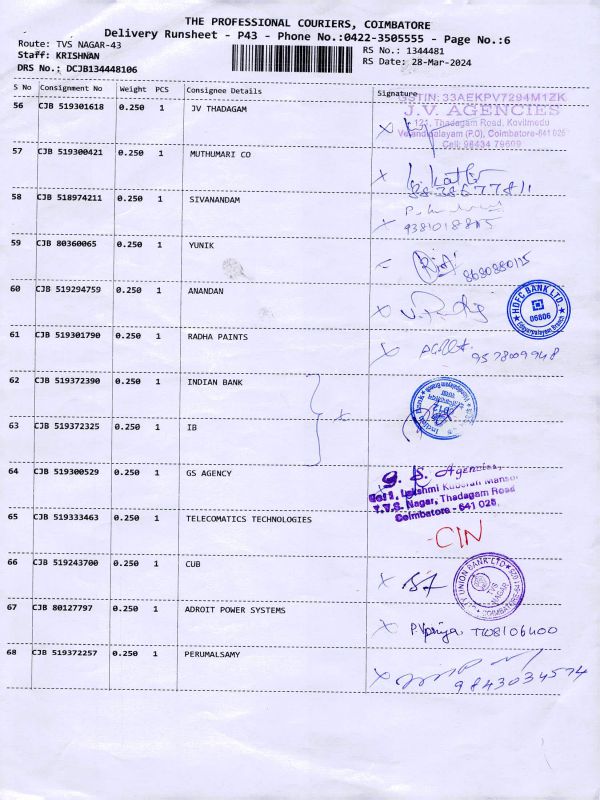 THE PROFESSIONAL COURIERS, COIMBATORE
Delivery Runsheet - P43 - Phone No.:0422-3505555 - Page No.:6
Route: TVS NAGAR-43
Staff: KRISHNAN
DRS No.: DCJB134448106
RS No.: 1344481
RS Date: 28-Mar-2024
S No Consignment No Weight PCS Consignee Details Signature
GSTIN: 33AEKPV7294M1ZK
J.V. AGENCIES
121, Thadagam Road, Kovilmedu
Velandipalayam (P.O), Coimbatore-641 025
Cell: 98434 79699
56 CJB 519301618 0.250 1 JV THADAGAM X
57 CJB 519300421 0.250 1 MUTHUMARI CO X
58 CJB 518974211 0.250 1 SIVANANDAM
59 CJB 80360065 0.250 1 YUNIK
8680880125
60 CJB 519294759 0.250 1 ANANDAN X
HDFC BANK LTD.
06806
61 CJB 519301790 0.250 1 RADHA PAINTS X
9578009948
62 CJB 519372390 0.250 1 INDIAN BANK X
Indian Bank
63 CJB 519372325 0.250 1 IB
64 CJB 519300529 0.250 1 GS AGENCY
G. S. Agencies,
Lakshmi Kuberan Mansion
T.V.S. Nagar, Thadagam Road
Coimbatore - 641 025.
65 CJB 519333463 0.250 1 TELECOMATICS TECHNOLOGIES
-CIN
66 CJB 519243700 0.250 1 CUB X
UNION BANK LTD
TVS NAGAR
COIMBATORE
67 CJB 80127797 0.250 1 ADROIT POWER SYSTEMS X
68 CJB 519372257 0.250 1 PERUMALSAMY X
9843034574